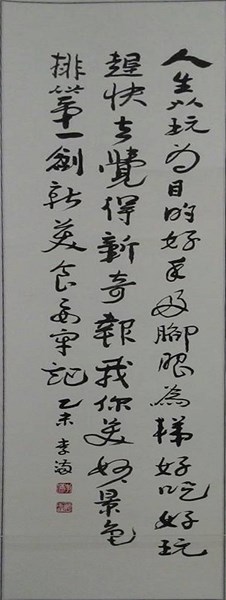 人生以玩为目的好手好腳眼為梯好吃好玩
趕快去覺得新奇報我你美好景色
排第一創新美食要牢記乙未李海